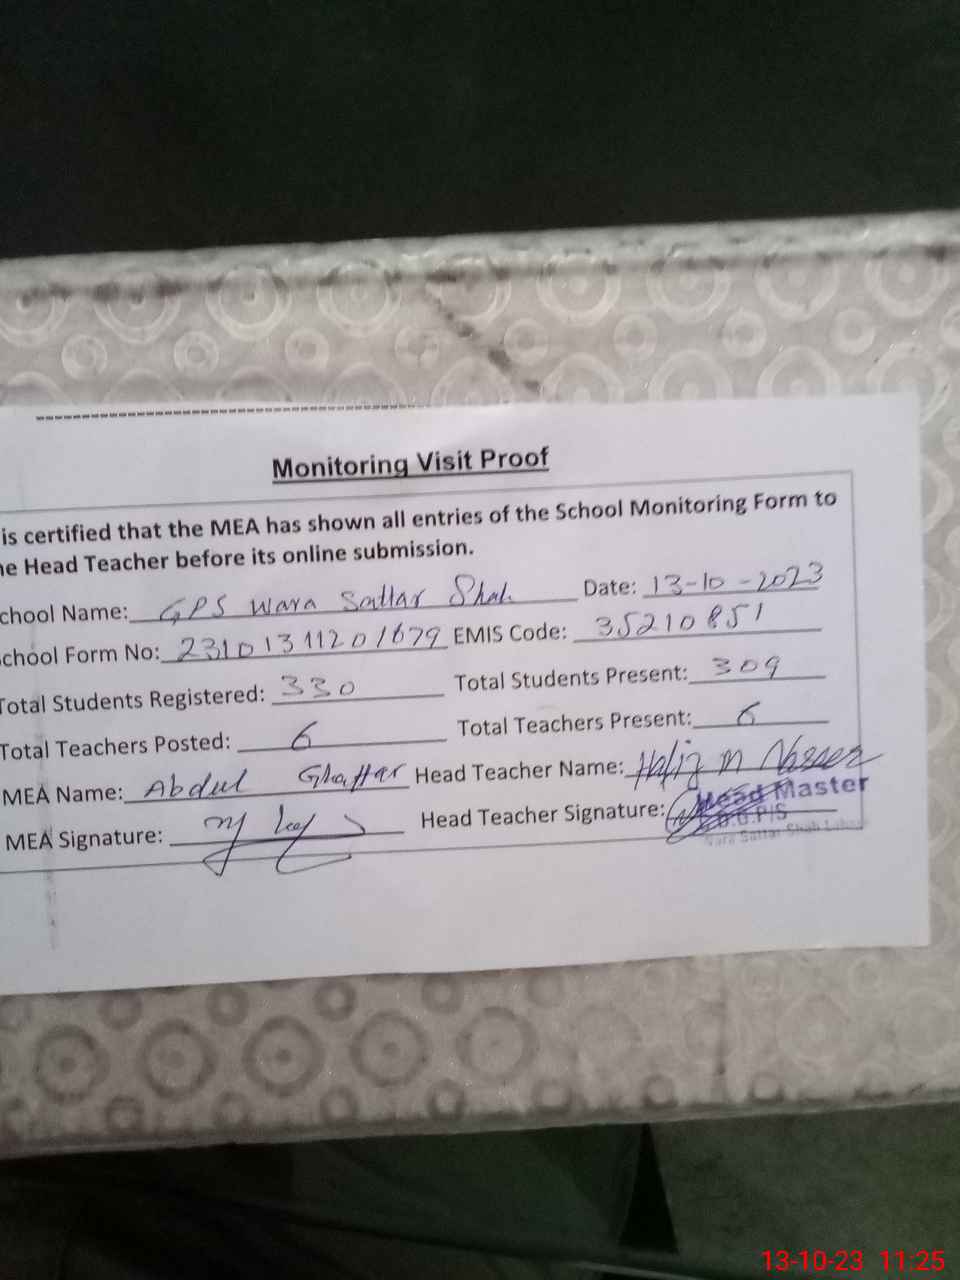 Monitoring Visit Proof
is certified that the MEA has shown all entries of the School Monitoring Form to
he Head Teacher before its online submission.
chool Name: GPS Wara Sattar Shah Date: 13-10-2023
chool Form No: 23101311201679 EMIS Code: 35210851
Total Students Registered: 330 Total Students Present: 309
Total Teachers Posted: 6 Total Teachers Present: 6
MEA Name: Abdul Ghaffar Head Teacher Name: Hafiz M Naseer
MEA Signature: Head Teacher Signature:
Head Master
G.P/S
Wara Sattar Shah Lahore
13-10-23 11:25